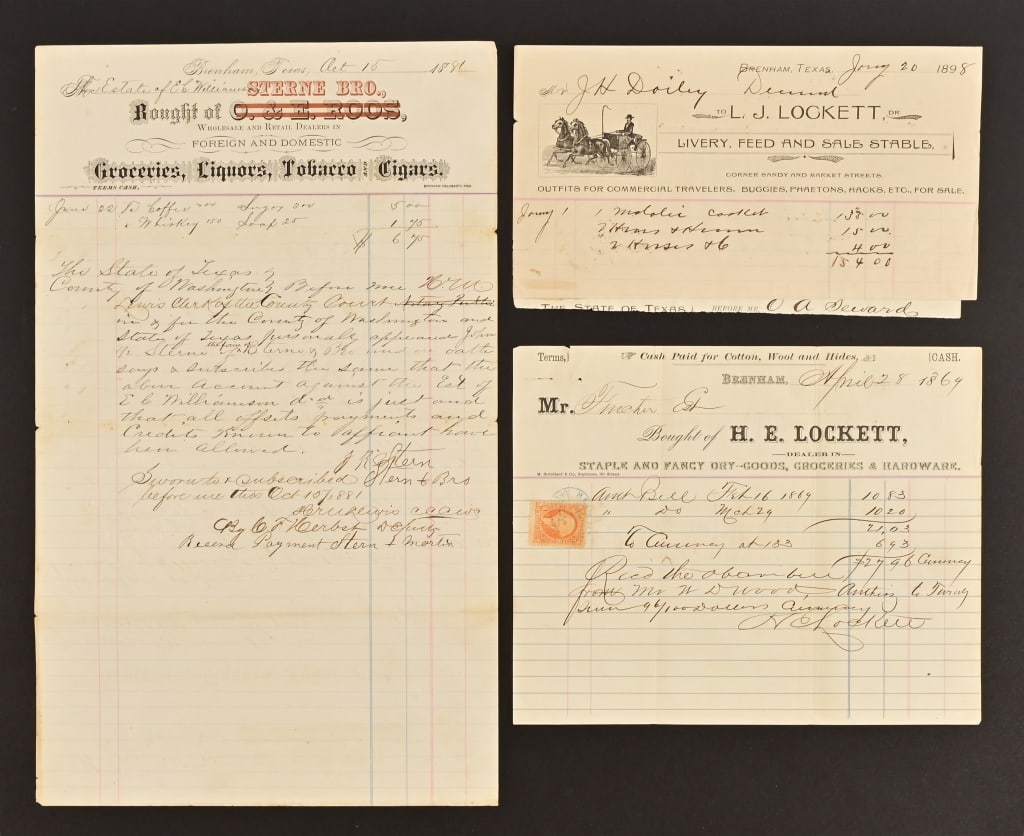 Brenham, Texas, Oct 15 1881
The Estate of E C Williamson
STERNE BRO.,
Bought of O. & E. ROOS,
WHOLESALE AND RETAIL DEALERS IN
FOREIGN AND DOMESTIC
Groceries, Liquors, Tobacco and Cigars.
TERMS CASH.
June 22 To Coffee 200 Sugar 300 5 00
" Whiskey 150 Soap 25 1 75
$ 6 75
The State of Texas
County of Washington Before me
Lewis Clerk of the County Court Notary Public
in & for the County of Washington and
State of Texas personally appeared John
R Sterne of the firm of Sterne & Bro and on oath
says & subscribes the same that the
above account against the Est of
E C Williamson decd is just and
that all offsets payments and
Credits Known to affiant have
been allowed.
J R Stern
Sworn to & subscribed Stern & Bro
before me this Oct 15 1881
By C F Herbst Deputy
Recend Payment Stern & Morten
BRENHAM, TEXAS, Jany 20 1898
Mr J H Doiley
TO L. J. LOCKETT, DR.
LIVERY, FEED AND SALE STABLE,
CORNER SANDY AND MARKET STREETS.
OUTFITS FOR COMMERCIAL TRAVELERS. BUGGIES, PHAETONS, HACKS, ETC., FOR SALE.
Jany 1 1 Metalic casket 135 00
15 00
" Horses & C 4 00
154 00
THE STATE OF TEXAS, BEFORE ME O A Seward
Terms, Cash Paid for Cotton, Wool and Hides, CASH.
BRENHAM, April 28 1869
Mr. Est
Bought of H. E. LOCKETT,
DEALER IN
STAPLE AND FANCY DRY-GOODS, GROCERIES & HARDWARE.
Amt Bill Feb 16 1869 10 83
" Do Mch 29 10 20
21.03
To Currency at 133 6 93
$27.96 Currency
Recd the above bill
from Mr W D Wood, to Twenty
seven 96/100 Dollars Currency
H E Lockett